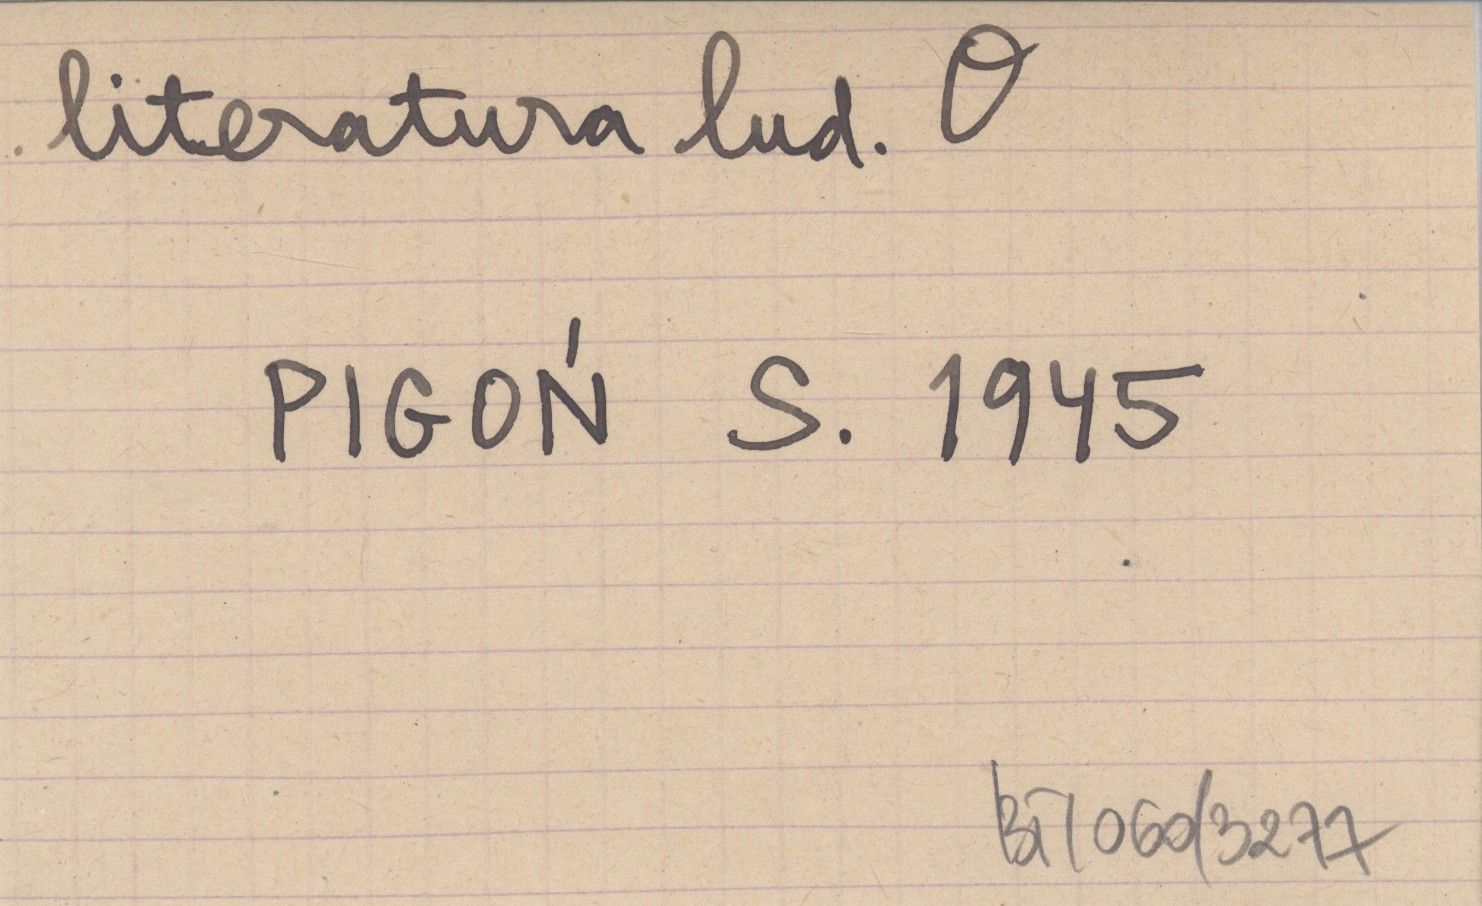 literatura lud. O
PIGOŃ S. 1945
BI/060/3277